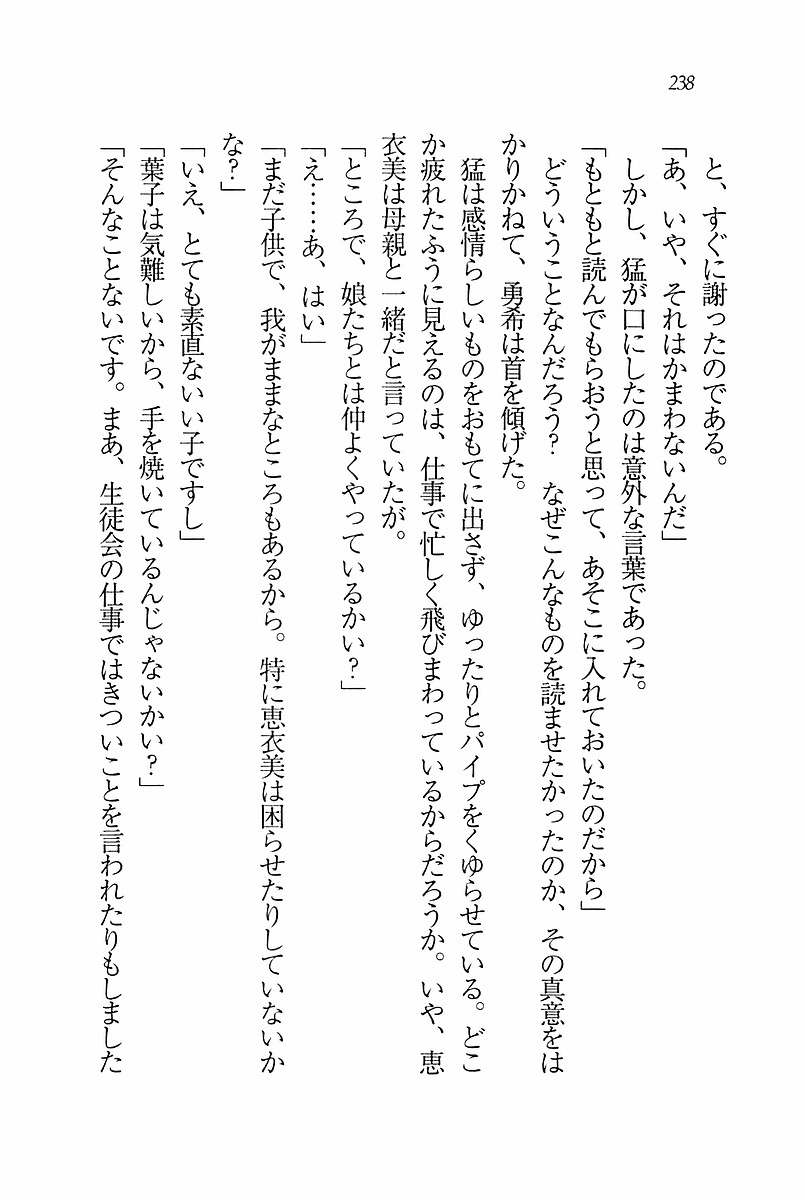 238
と、すぐに謝ったのである。
「あ、いや、それはかまわないんだ」
しかし、猛が口にしたのは意外な言葉であった。
「もともと読んでもらおうと思って、あそこに入れておいたのだから」
どういうことなんだろう？　なぜこんなものを読ませたかったのか、その真意をは
かりかねて、勇希は首を傾げた。
猛は感情らしいものをおもてに出さず、ゆったりとパイプをくゆらせている。どこ
か疲れたふうに見えるのは、仕事で忙しく飛びまわっているからだろうか。いや、恵
衣美は母親と一緒だと言っていたが。
「ところで、娘たちとは仲よくやっているかい？」
「え……あ、はい」
「まだ子供で、我がままなところもあるから。特に恵衣美は困らせたりしていないか
な？」
「いえ、とても素直ないい子ですし」
「葉子は気難しいから、手を焼いているんじゃないかい？」
「そんなことないです。まあ、生徒会の仕事ではきついことを言われたりもしました